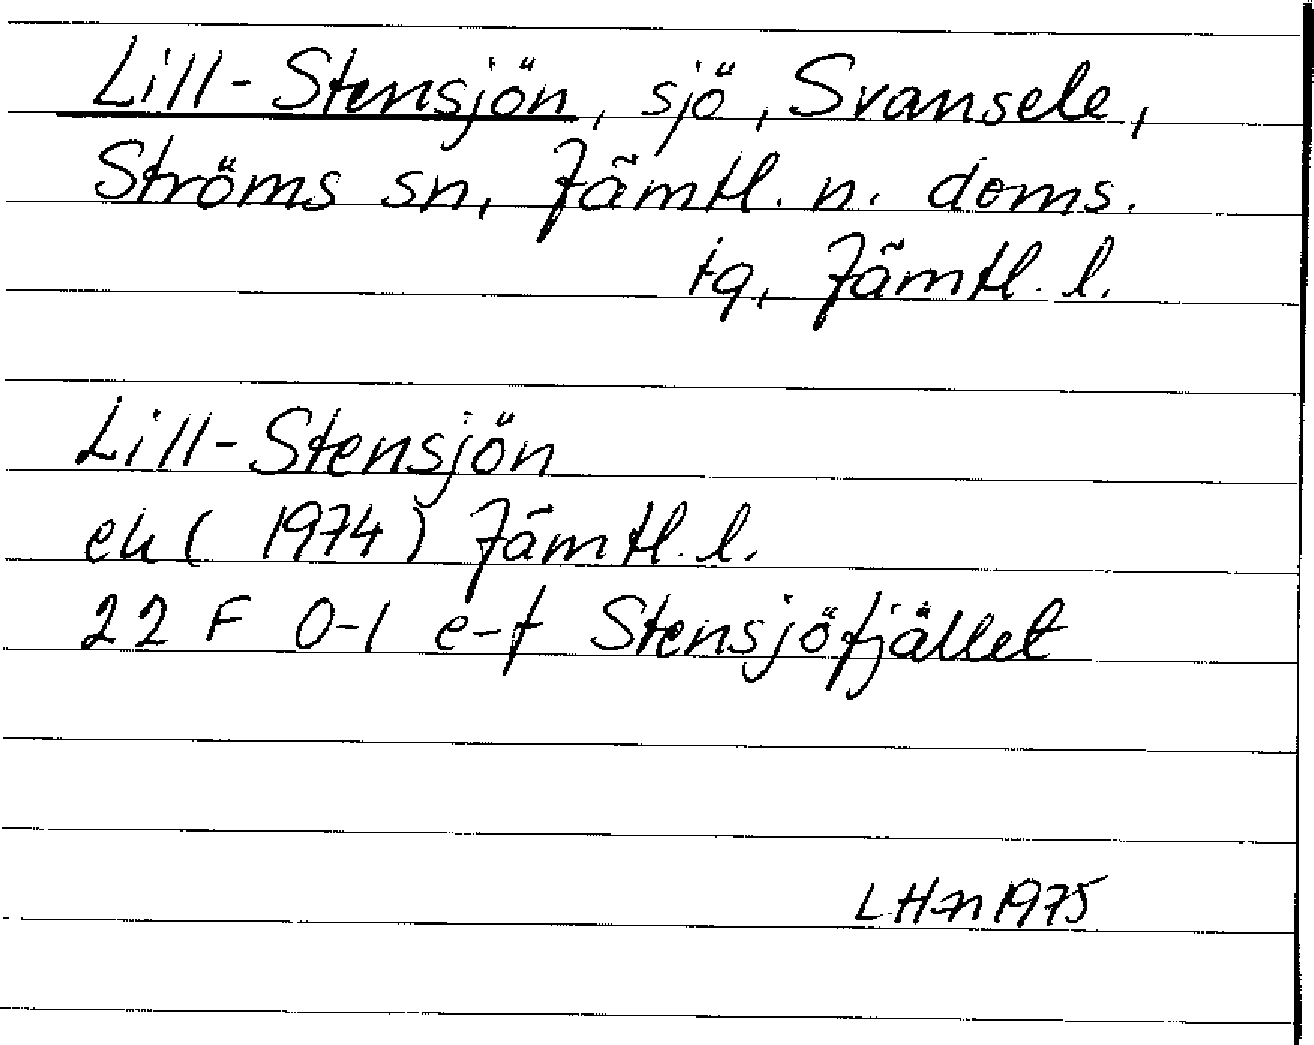 Lill-Stensjön, sjö, Svansele,
Ströms sn, Jämtl. n. doms.
tg, Jämtl. l.
Lill-Stensjön
ek ( 1974 ) Jämtl. l.
22 F 0-1 e-f Stensjöfjället
LHn 1975